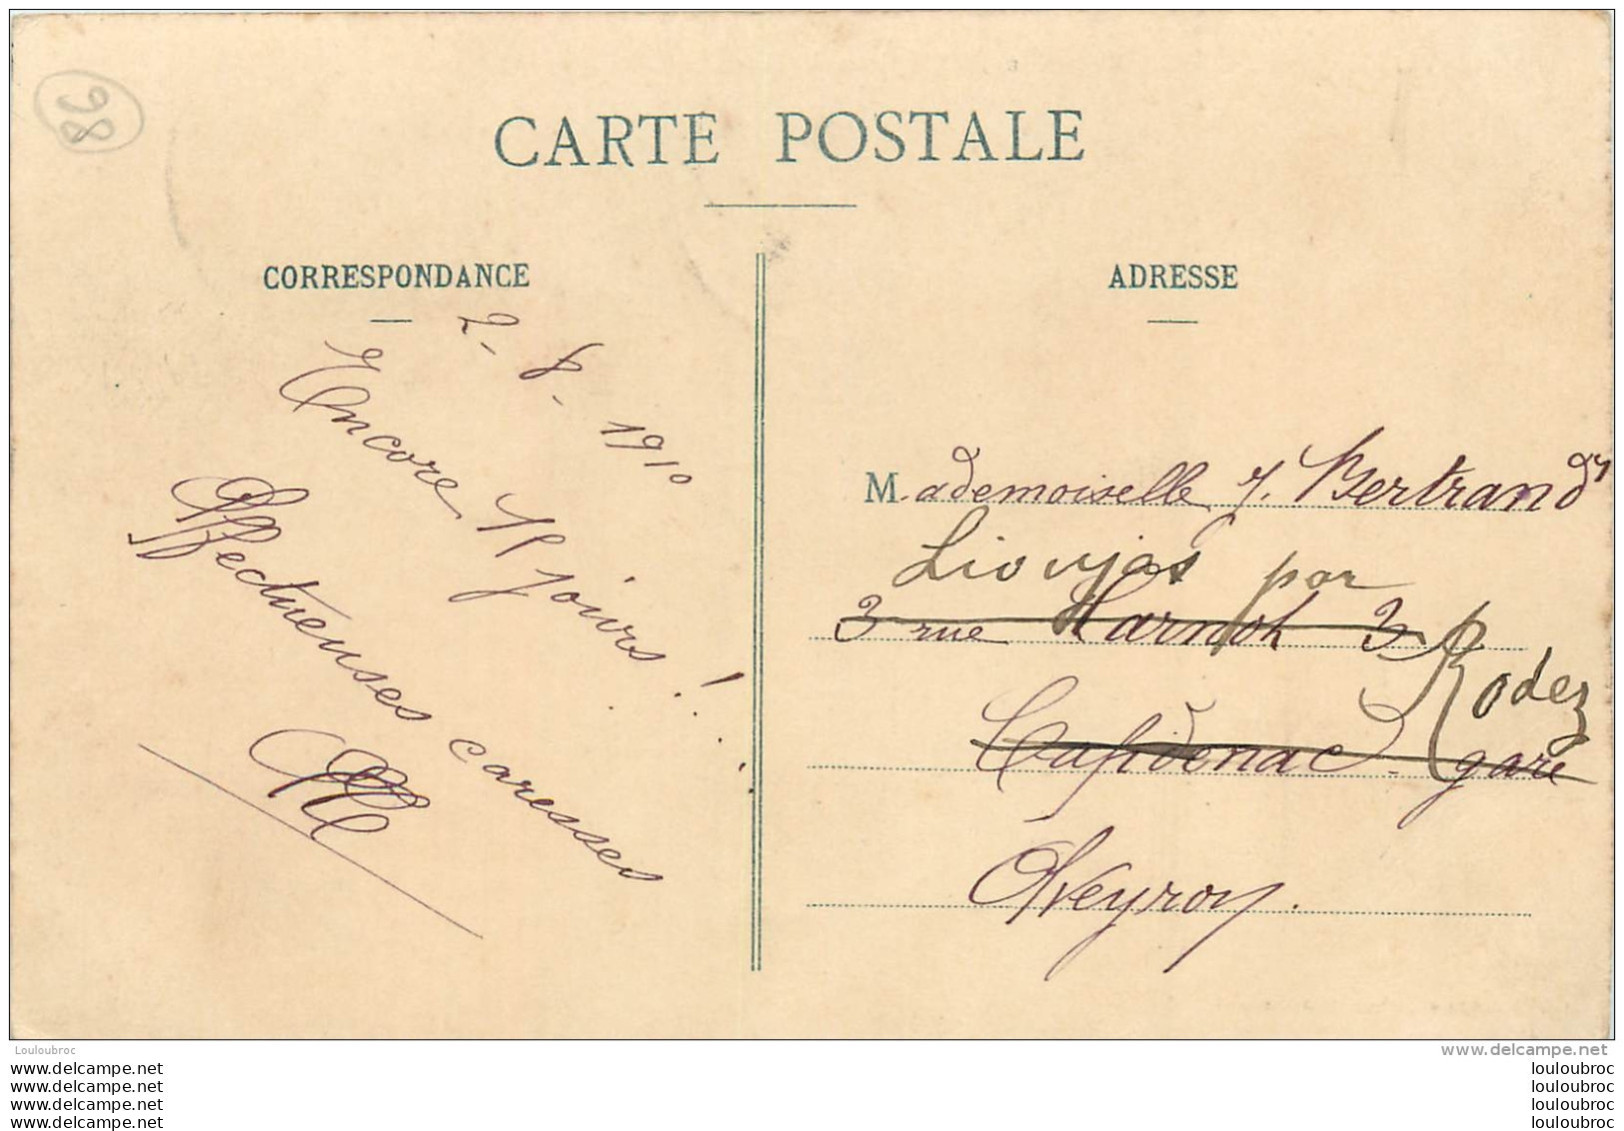 98
CARTE POSTALE
CORRESPONDANCE
2-8-1910
Encore 15 jours!...
Affectueuses caresses
ADRESSE
Mademoiselle Y. Bertrand
Lioujas par
3 rue Carnot 3
Rodez
Capdenac gare
Aveyron.
Louloubroc
www.delcampe.net
www.delcampe.net louloubroc
www.delcampe.net louloubroc
www.delcampe.net louloubroc
www.delcampe.net louloubroc